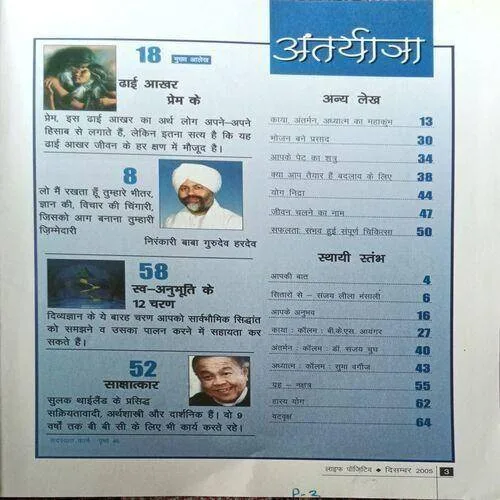 अंतर्यात्रा
18 मुख्य आलेख
ढाई आखर
प्रेम के
प्रेम, इस ढाई आखर का अर्थ लोग अपने-अपने
हिसाब से लगाते हैं, लेकिन इतना सत्य है कि यह
ढाई आखर जीवन के हर क्षण में मौजूद है।
8
लो मैं रखता हूँ तुम्हारे भीतर,
ज्ञान की, विचार की चिंगारी,
जिसको आग बनाना तुम्हारी
ज़िम्मेदारी
निरंकारी बाबा गुरुदेव हरदेव
58
स्व-अनुभूति के
12 चरण
दिव्यज्ञान के ये बारह चरण आपको सार्वभौमिक सिद्धांत
को समझने व उसका पालन करने में सहायता कर
सकते हैं।
52
साक्षात्कार
सुलक थाईलैंड के प्रसिद्ध
सक्रियतावादी, अर्थशास्त्री और दार्शनिक हैं। वो 9
वर्षों तक बी बी सी के लिए भी कार्य करते रहे।
सदस्यता फार्म - पृष्ठ 46
अन्य लेख
काया, अंतर्मन, अध्यात्म का महाकुंभ 13
भोजन बने प्रसाद 30
आपके पेट का शत्रु 34
क्या आप तैयार हैं बदलाव के लिए 38
योग निद्रा 44
जीवन चलने का नाम 47
सफलता: संभव हुई संपूर्ण चिकित्सा 50
स्थायी स्तंभ
आपकी बात 4
सितारों से - संजय लीला भंसाली 6
आपके अनुभव 16
काया : कॉलम : बी.के.एस. आयंगर 27
अंतर्मन : कॉलम : डॉ. संजय चुघ 40
अध्यात्म : कॉलम : सुमा वर्गीज 43
ग्रह - नक्षत्र 55
हास्य योग 62
वटवृक्ष 64
लाइफ पॉजिटिव ◆ दिसम्बर 2005 3
P-3